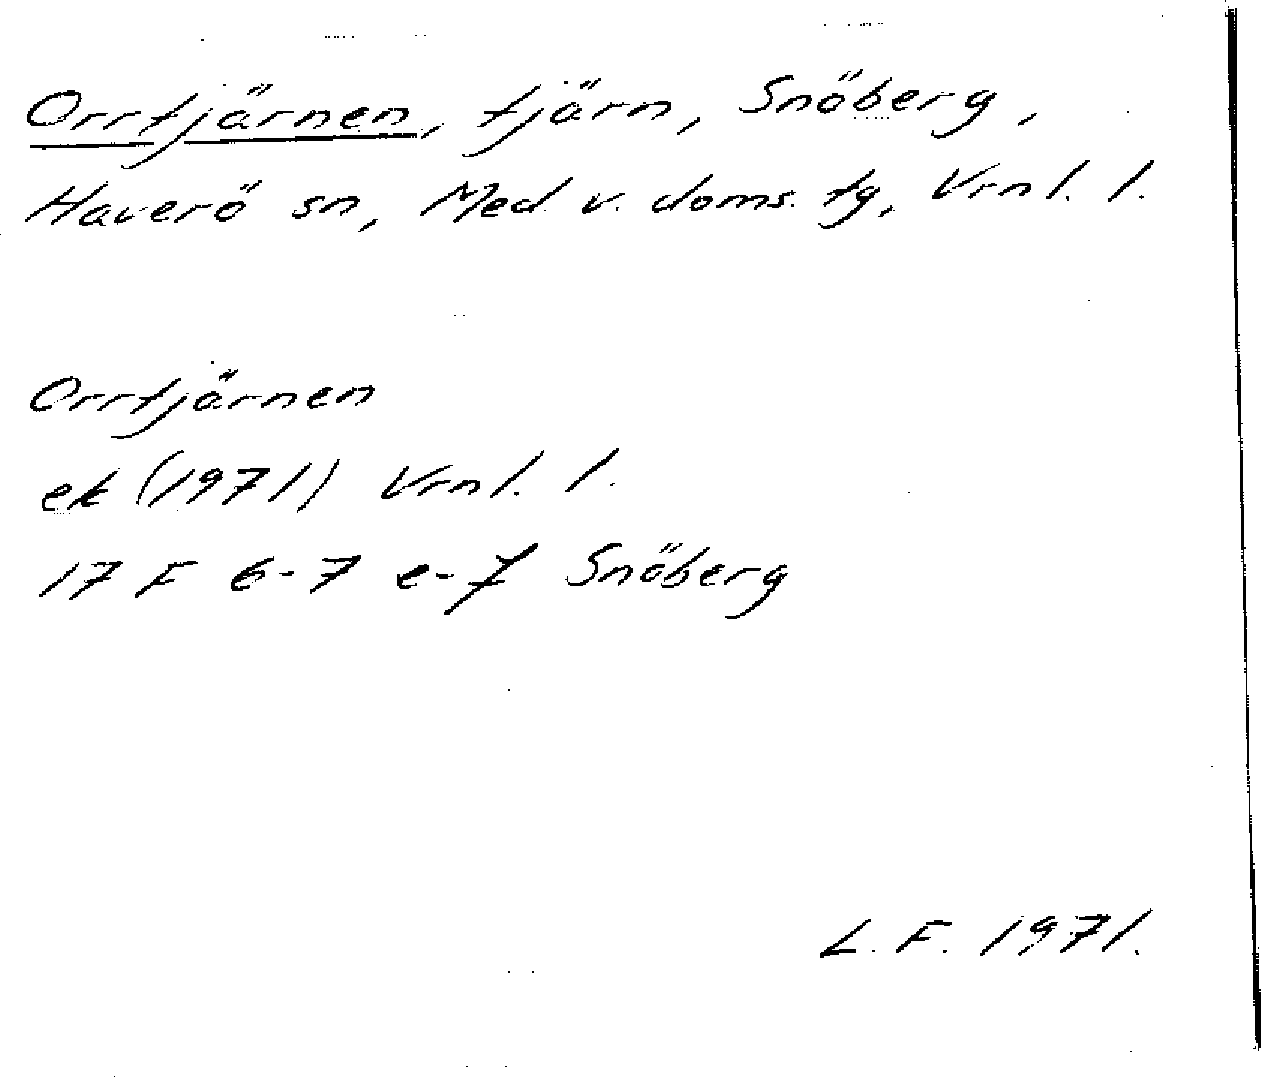 Orrtjärnen, tjärn, Snöberg,
Haverö sn, Med. v. doms. tg, Vrnl. l.
Orrtjärnen
ek (1971) Vrnl. l.
17 F 6-7 e-f Snöberg
L. F. 1971.